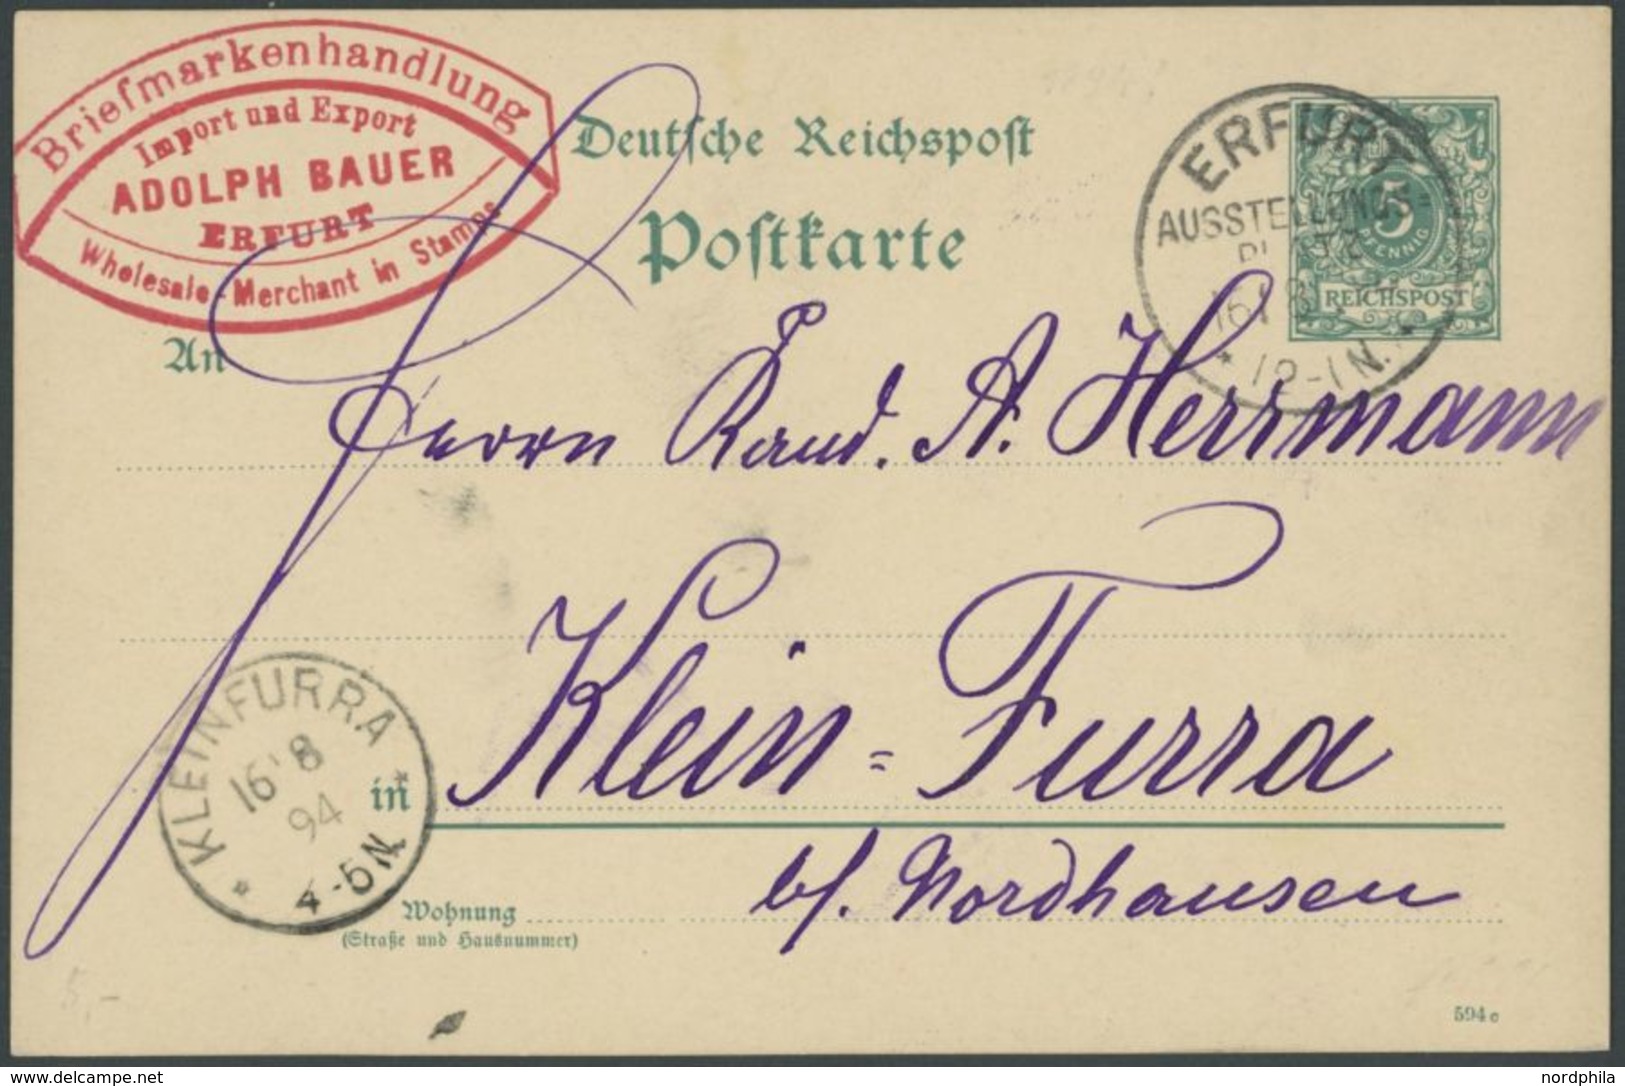 Briefmarkenhandlung
Import und Export
ADOLPH BAUER
ERFURT
Wholesale-Merchant in Stamps
Deutsche Reichspost
Postkarte
ERFURT
AUSSTELLUNGS=
* 12-1N. *
5
PFENNIG
REICHSPOST
An
Herrn Kand. A. Herrmann
KLEINFURRA
16 8
94
* 4-5N. *
in
Klein=Furra
b/. Nordhausen
Wohnung
(Straße und Hausnummer)
5,-
594 c
www.delcampe.net
nordphila